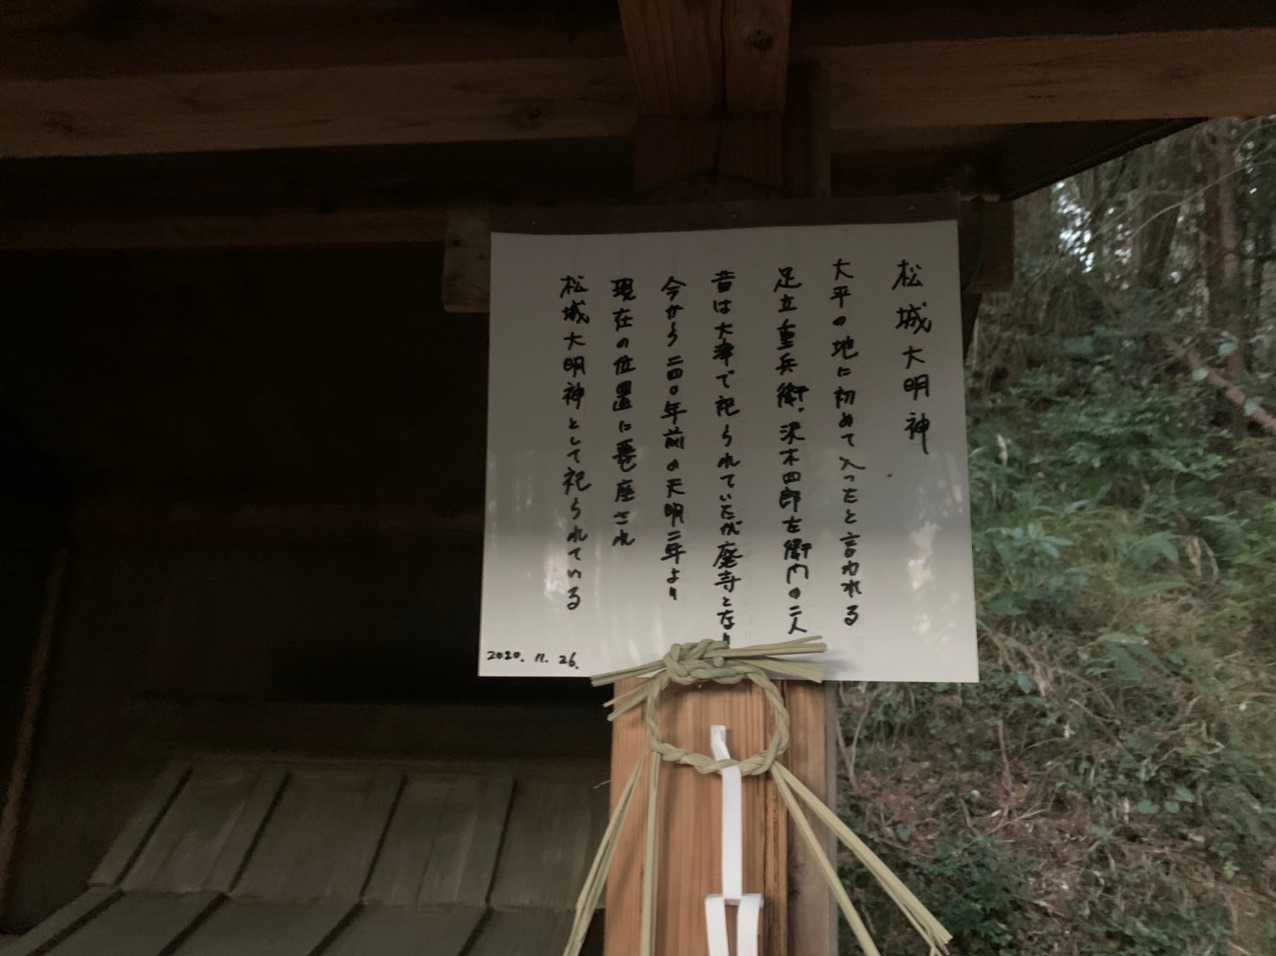 松城大明神
大平の地に初めて入ったと言われる
足立重兵衛・沢木四郎左衛門の二人
昔は大津で祀られていたが廃寺となり
今から二四〇年前の天明二年より
現在の位置に遷座され
松城大明神として祀られている
2020.11.26.